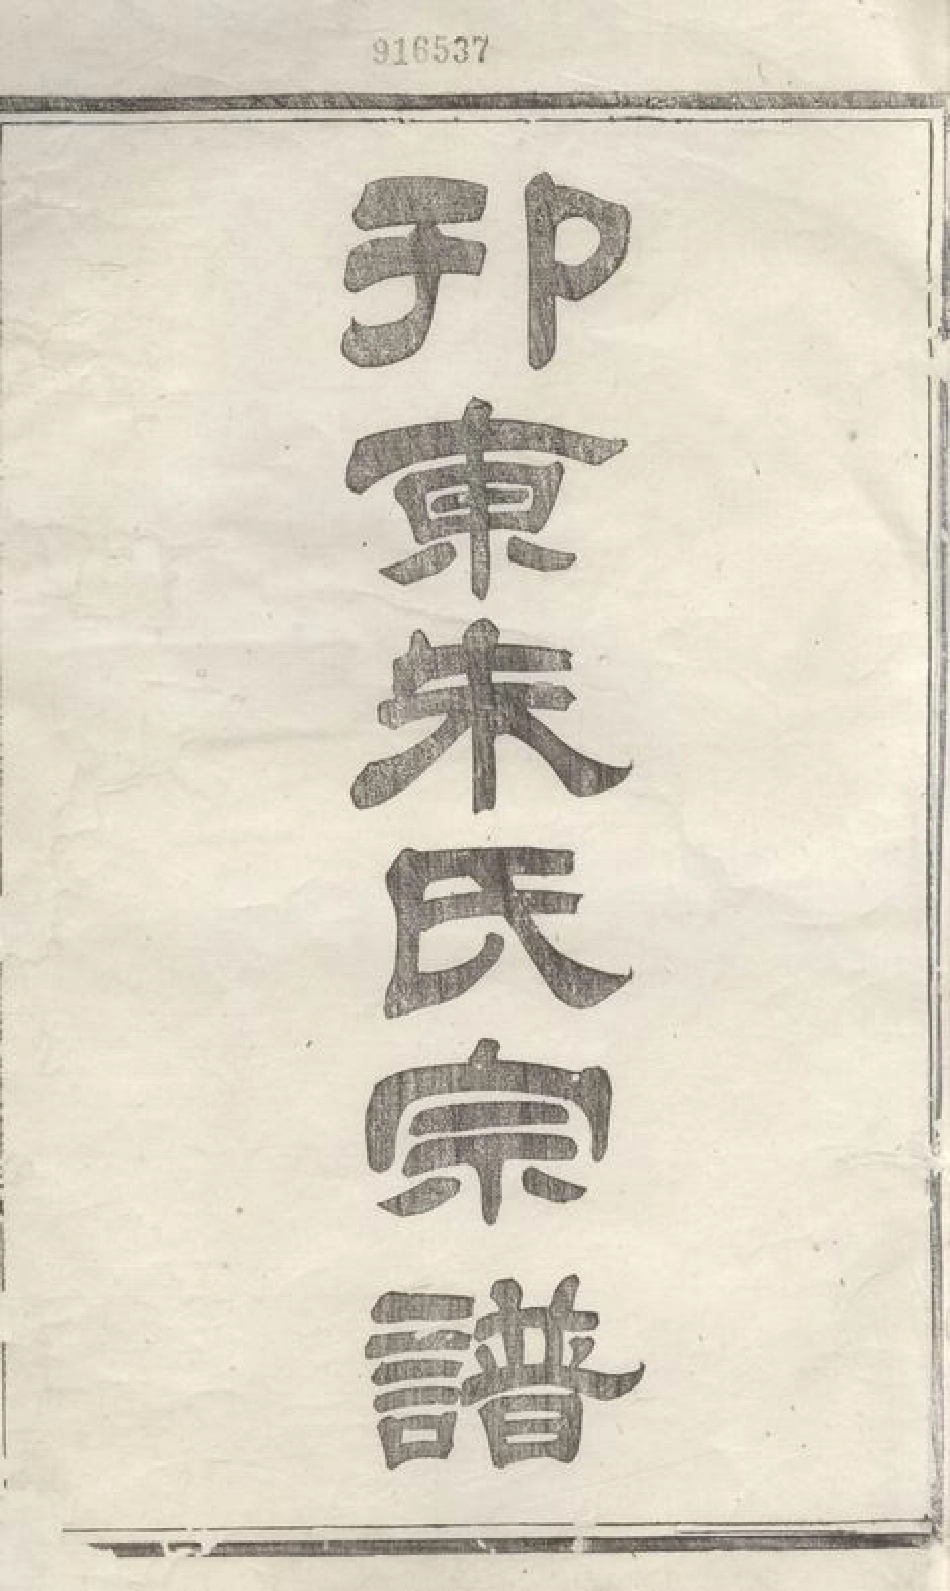 916537
邗東朱氏宗譜